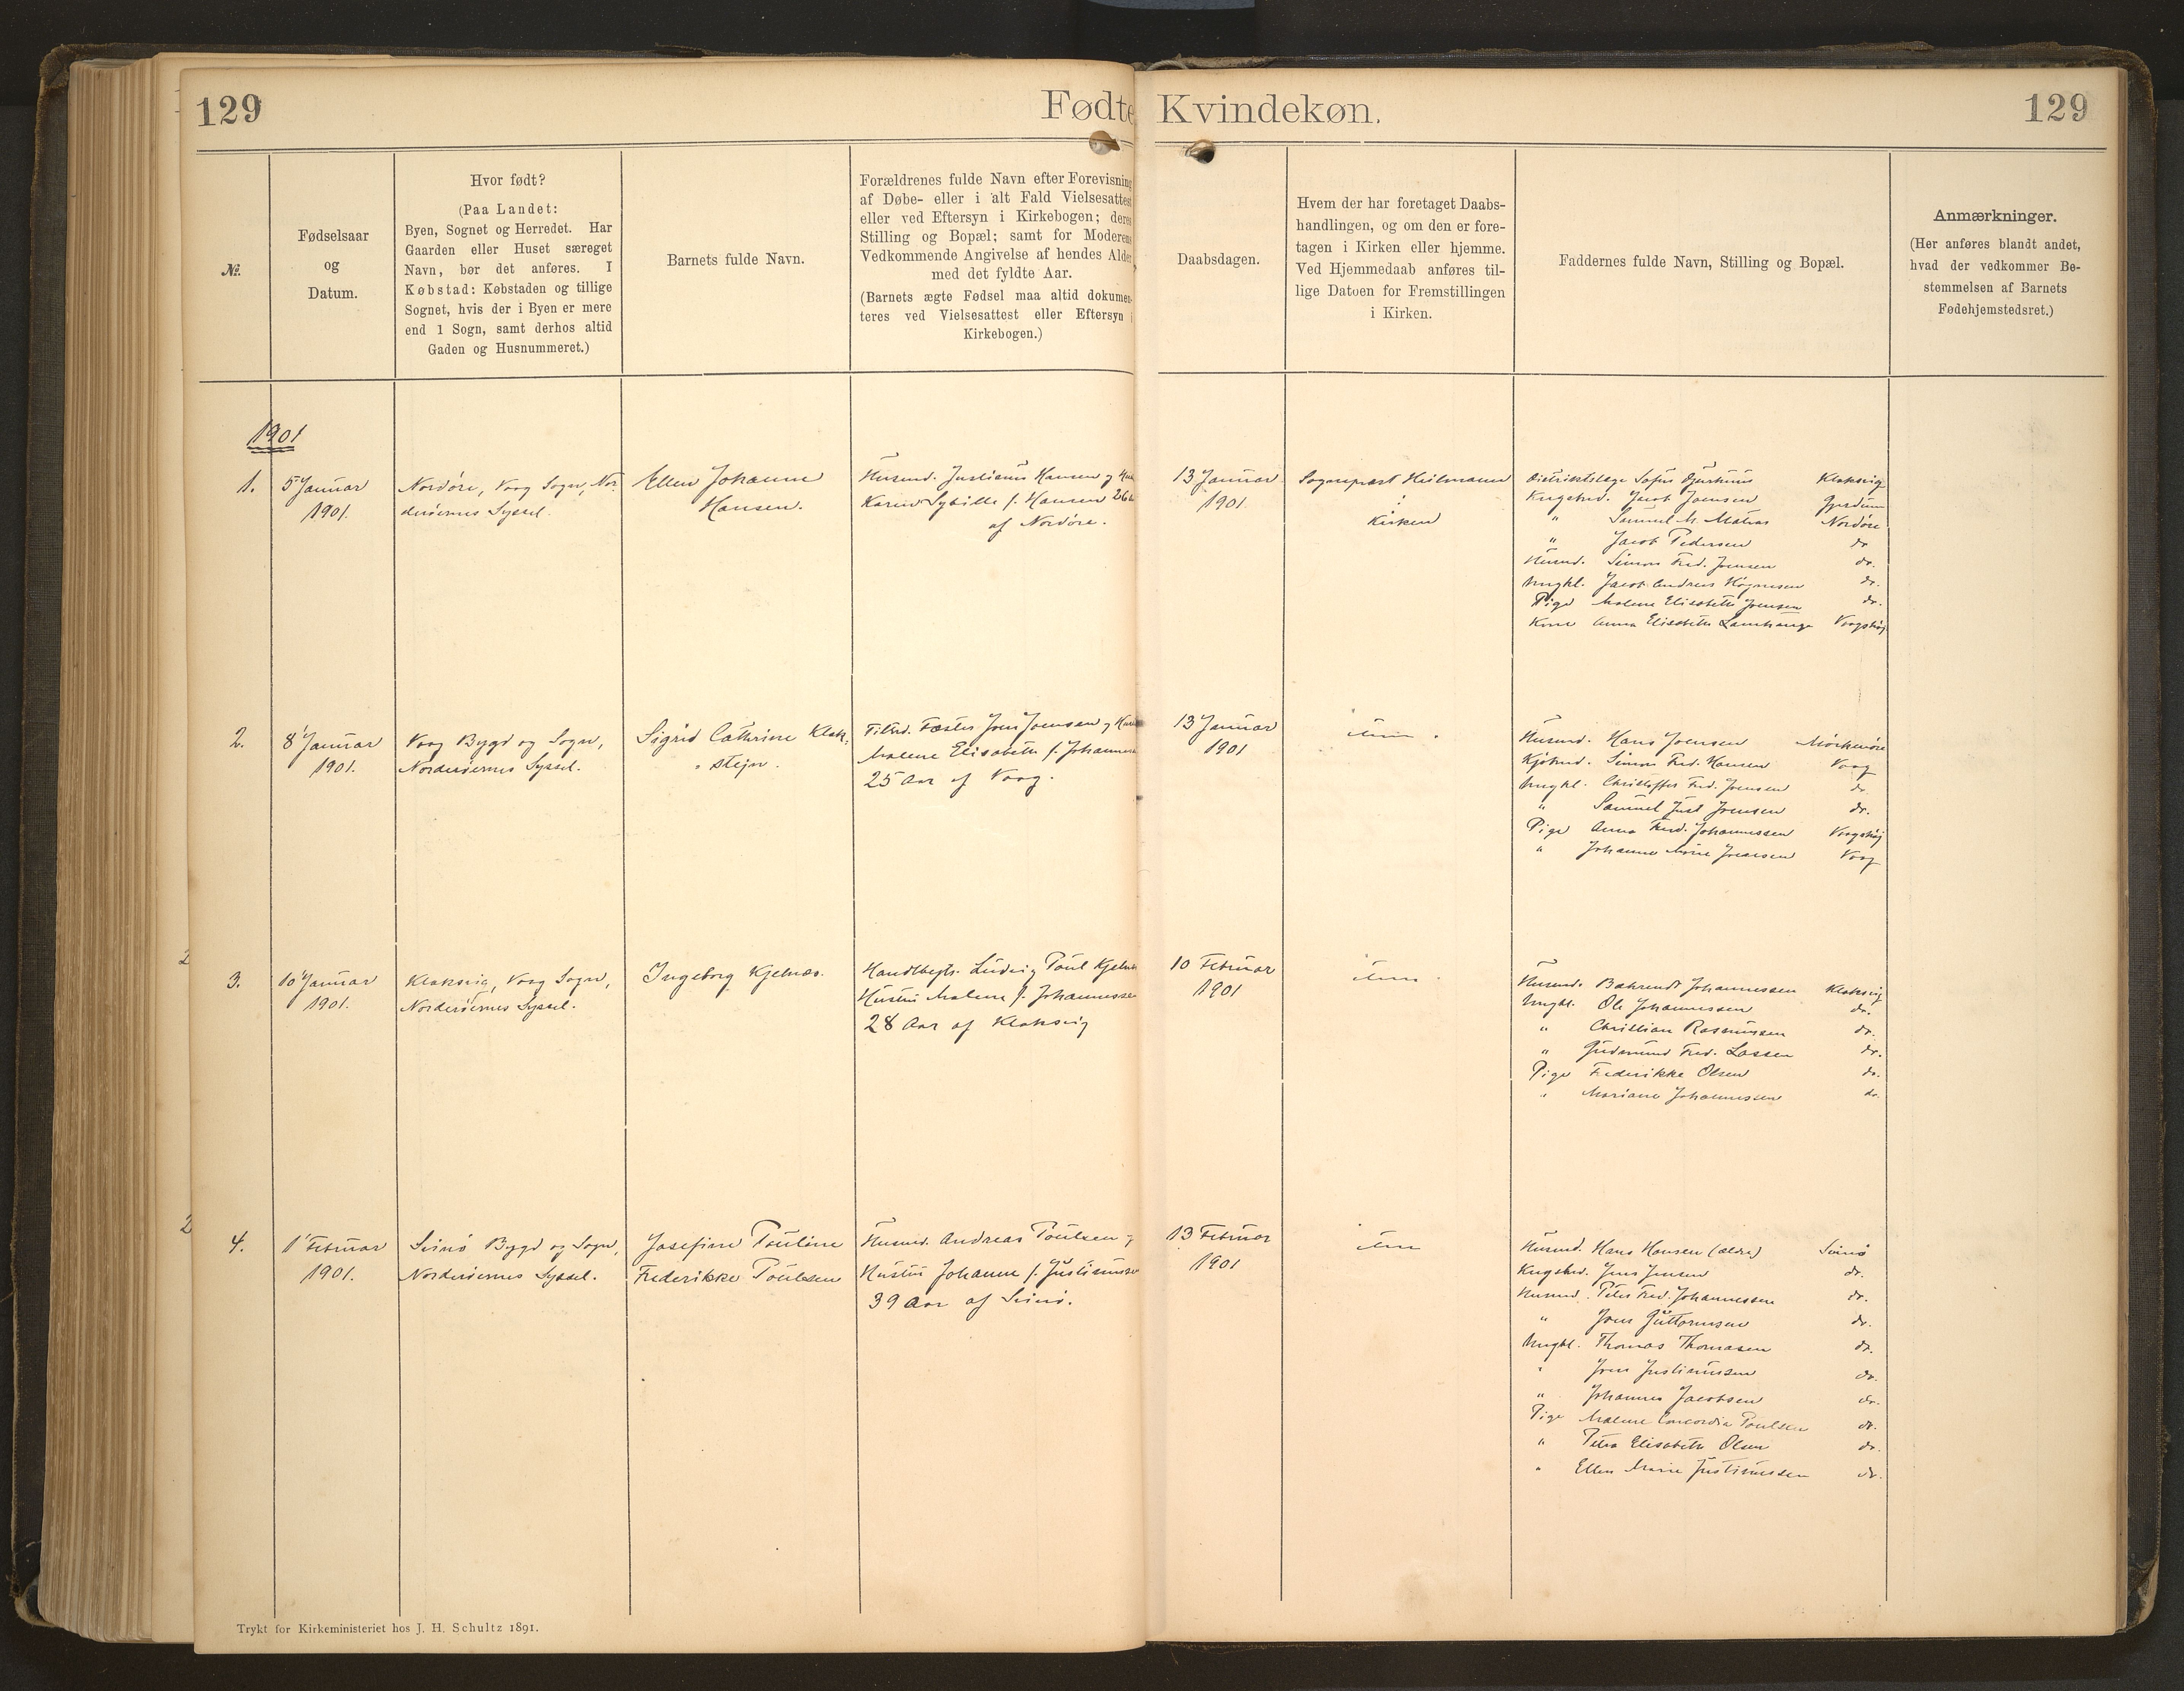 129
Fødte Kvindekøn.
129
№.
Fødselsaar
og
Datum.
Hvor født?
(Paa Landet:
Byen, Sognet og Herredet. Har
Gaarden eller Huset særeget
Navn, bør det anføres. I
Købstad: Købstaden og tillige
Sognet, hvis der i Byen er mere
end 1 Sogn, samt derhos altid
Gaden og Husnummeret.)
Barnets fulde Navn.
Forældrenes fulde Navn efter Forevisning
af Døbe- eller i alt Fald Vielsesattest
eller ved Eftersyn i Kirkebogen; deres
Stilling og Bopæl; samt for Moderens
Vedkommende Angivelse af hendes Alder
med det fyldte Aar.
(Barnets ægte Fødsel maa altid dokumen-
teres ved Vielsesattest eller Eftersyn i
Kirkebogen.)
Daabsdagen.
Hvem der har foretaget Daabs-
handlingen, og om den er fore-
tagen i Kirken eller hjemme.
Ved Hjemmedaab anføres til-
lige Datoen for Fremstillingen
i Kirken.
Faddernes fulde Navn, Stilling og Bopæl.
Anmærkninger.
(Her anføres blandt andet,
hvad der vedkommer Be-
stemmelsen af Barnets
Fødehjemstedsret.)
1901
1.
5' Januar
1901.
Nordøre, Vaag Sogn, Nor-
derøernes Syssel.
Ellen Johanne
Hansen.
Husmd. Justinus Hansen og
Karin Sybille f. Hansen 26
af Nordøre.
13 Januar
1901.
Sognepræst Heilmann
i
Kirken
Distriktslæge Sofus Klaksvig
Kngsbd. Jacob Joensen
" Samuel M. Matras Nordøre
" Jacob Pedersen do
Husmd. Simon Fred. Joensen do.
Ungkl. Jacob Andreas Høgnesen do.
Pige Malene Elisabeth Joensen do.
Kone Anna Elisabeth Lamhauge
2.
8' Januar
1901.
Vaag Bygd og Sogn,
Norderøernes Syssel.
Sigrid Cathrine Klak-
stejn.
Fæster Jens Joensen og
Malene Elisabeth f. Johannesen
25 Aar af Vaag.
13 Januar
1901.
Husmd. Hans Joensen
Simon Fred. Hansen Vaag
Ungkl. Christoffer Fred. Joensen do
" Samuel Joensen do.
Pige Anna Fred. Johannessen
" Johanne Marie Joensen Vaag
3.
10' Januar
1901.
Klaksvig, Vaag Sogn,
Norderøernes Syssel.
Ingeborg Kjelnæs.
Handlbesty. Ludvig Poul
Hustru Malene f. Johannessen
28 Aar af Klaksvig
10 Februar
1901
Husmd. Bahrendt Johannessen Klaksvig
Ungkl. Ole Johannessen do.
" Christian Rasmussen do.
" Gudmund Fred. Lassen do.
Pige Frederikke Olsen do.
" Mariane Johannessen do.
4.
1' Februar
1901.
Svinø Bygd og Sogn,
Norderøernes Syssel.
Josefine Pouline
Frederikke Poulsen
Husmd. Andreas Poulsen og
Hustru Johanne f. Justinussen
39 Aar af Svinø.
13 Februar
1901
Husmd. Hans Hansen (ældre) Svinø
Kngsbd. Jens Jensen do.
Husmd. Peter Fred. Johannessen do.
" Jens Guttormsen do.
Ungkl. Thomas Thomasen do.
" Jens Justinussen do.
" Johannes Jacobsen do.
Pige Malene Concordia Poulsen do.
" Petra Elisabeth Olsen do.
" Ellen Marie Justinussen do.
Trykt for Kirkeministeriet hos J. H. Schultz 1891.